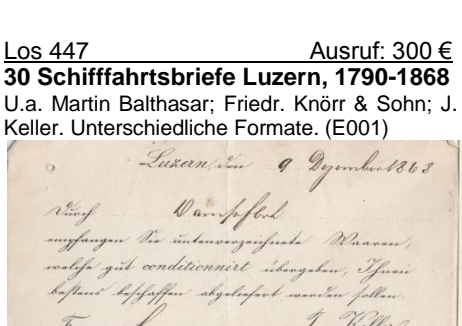 Los 447 Ausruf: 300 €
30 Schifffahrtsbriefe Luzern, 1790-1868
U.a. Martin Balthasar; Friedr. Knörr & Sohn; J.
Keller. Unterschiedliche Formate. (E001)
Luzern, den 9 Dezember 1863
Durch Dampfboot
empfangen Sie untenverzeichnete Waaren,
welche gut conditionnirt übergeben, Ihnen
bestens beschaffen abgeliefert werden sollen.
J. Keller